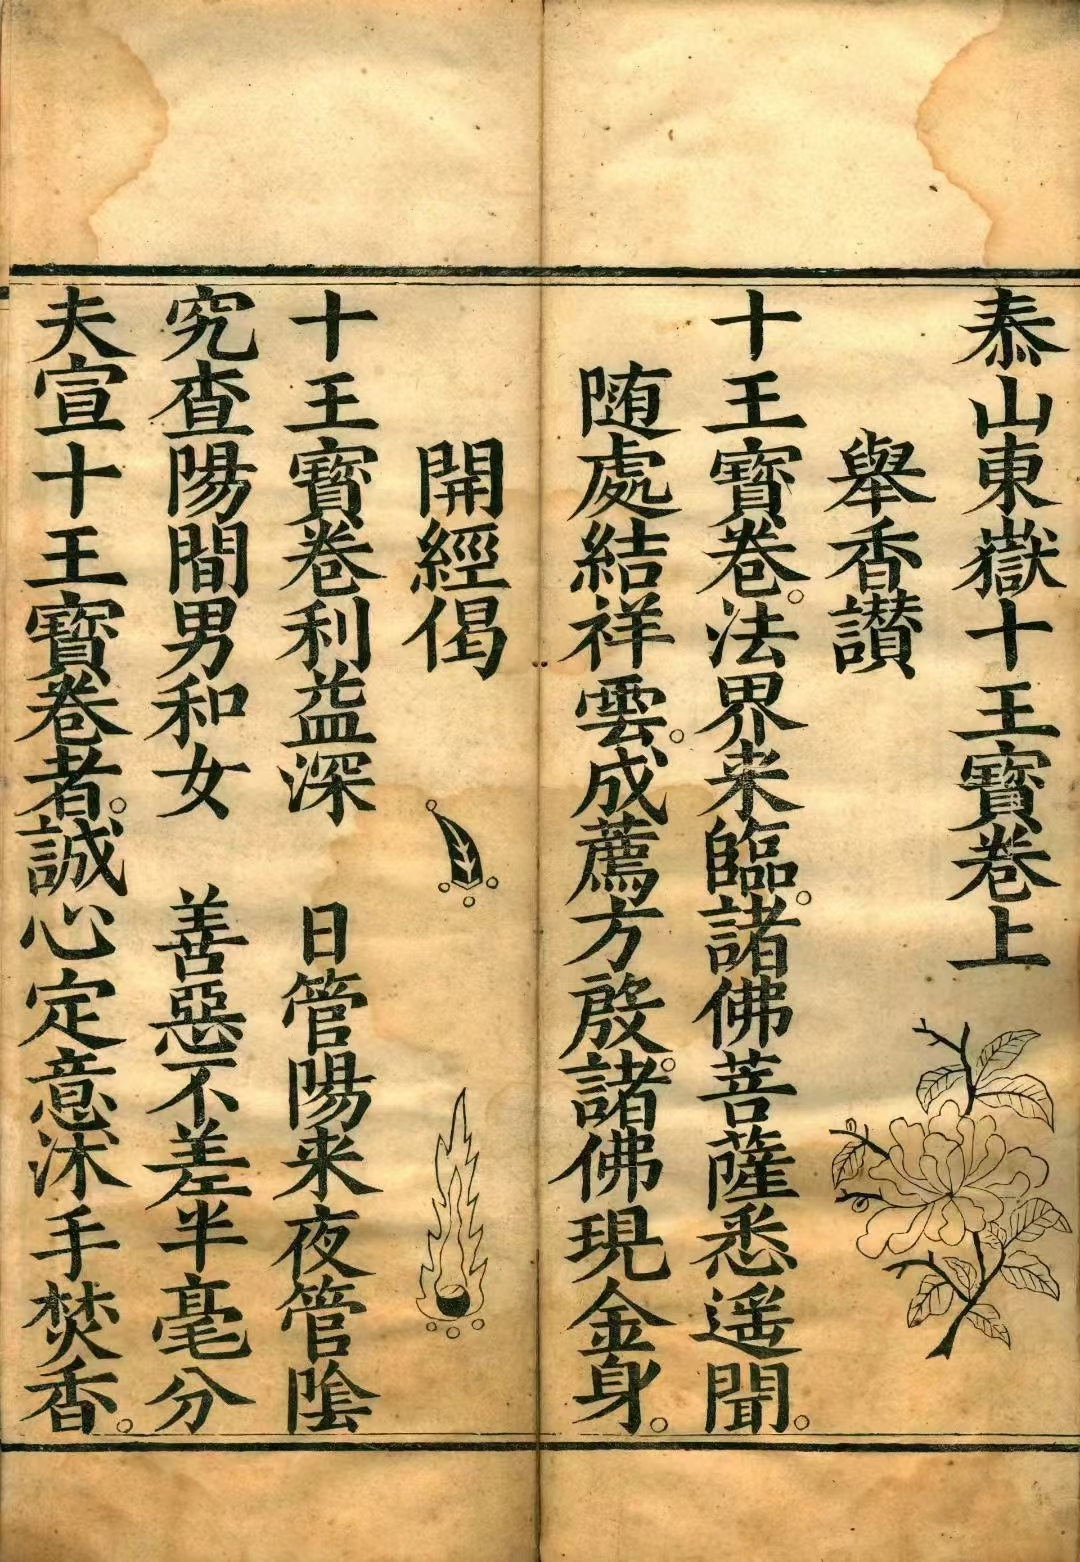 泰山東嶽十王寶卷上
舉香讃
十王寶卷。法界来臨。諸佛菩薩悉遥聞。
随處結祥雲。成薦方殷。諸佛現金身。
開經偈
十王寶卷利益深 日管陽来夜管陰
究查陽間男和女 善惡不差半毫分
夫宣十王寶卷者。誠心定意沐手焚香。